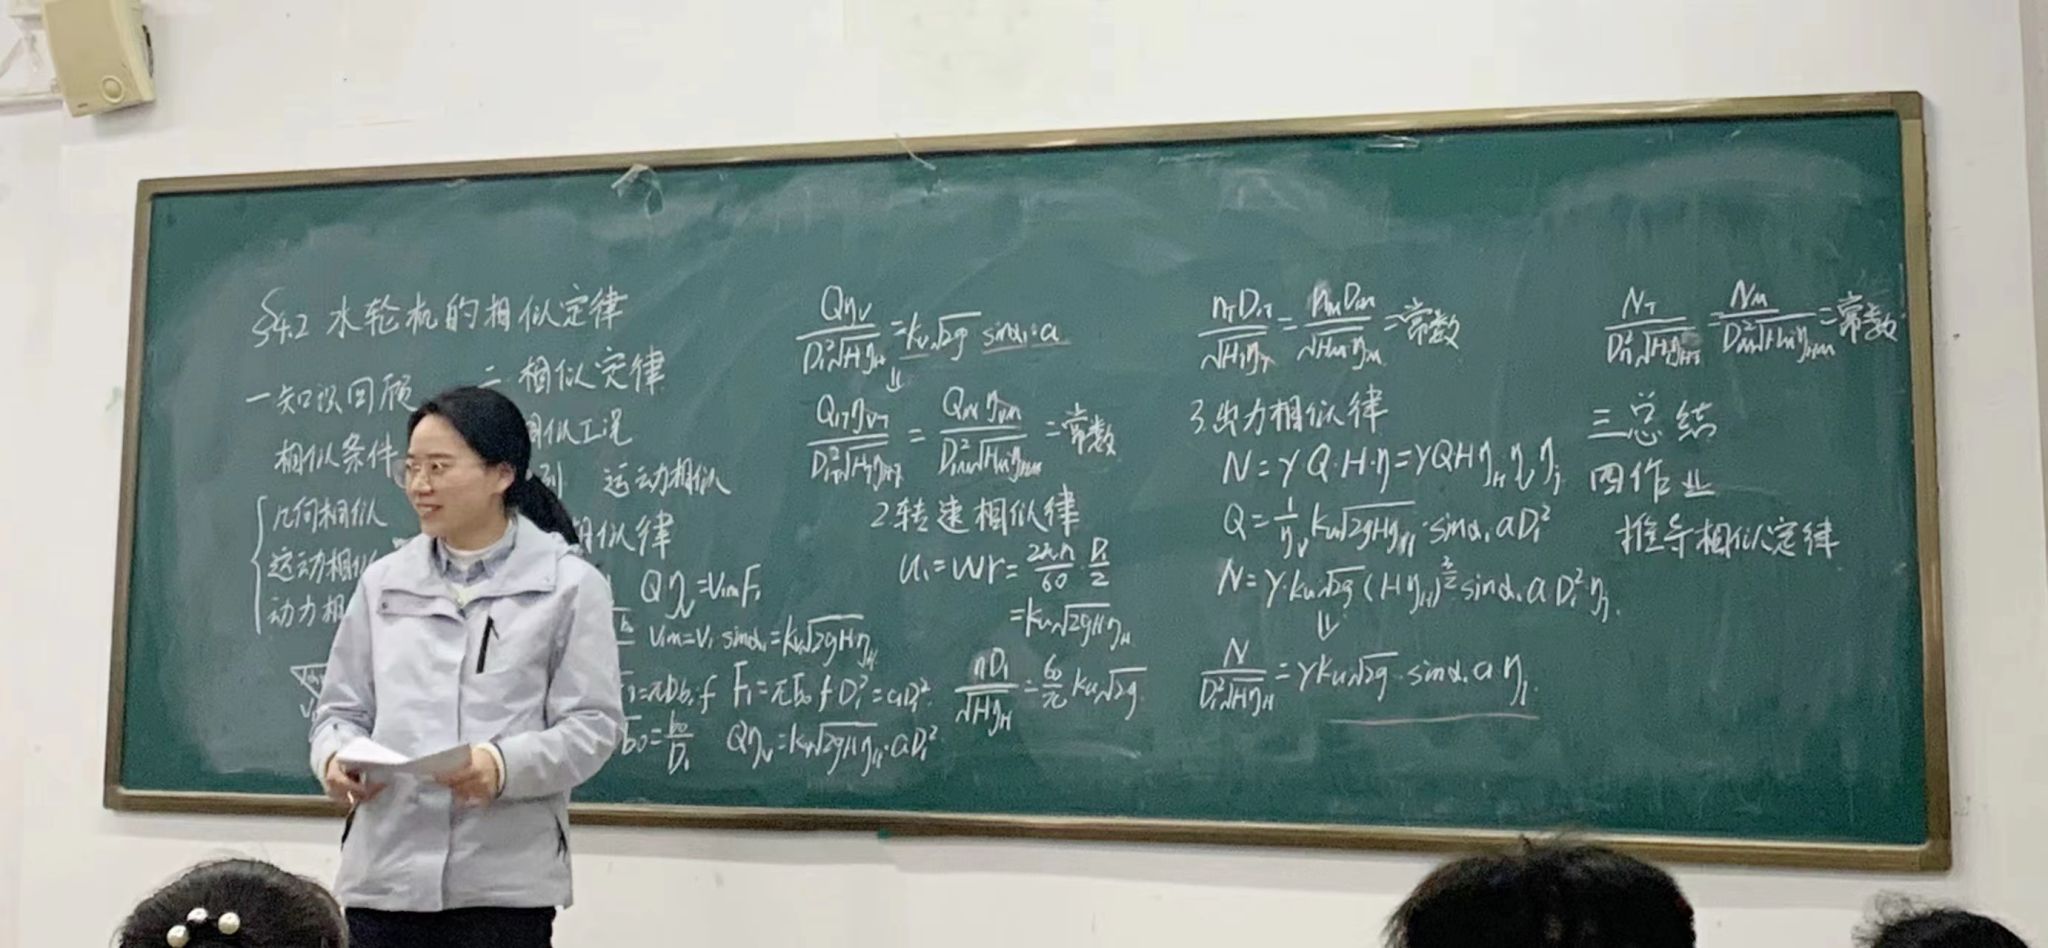 §4.2 水轮机的相似定律
一 知识回顾
相似条件
几何相似
运动相似
动力相
二 相似定律
相似工况
运动相似
相似律
Qη_v=V₁mF₁
V₁m=V₁ sinα₁=Kv√2gHη_H
=πDb₀f F₁=πb̄₀fD₁²=aD₁²
b̄₀=b₀/D₁ Qη_v=Kv√2gHη_H·aD₁²
Qη_v/D₁²√Hη_H=Kv√2g sinα₁·a
⇓
Q_Tη_vT/D₁T²√H_Tη_HT = Q_Mη_vM/D₁M²√H_Mη_HM =常数
2.转速相似律
u₁=wr=2πn/60·D₁/2
=Ku√2gHη_H
nD₁/√Hη_H=60/π Ku√2g
n_TD₁T/√H_Tη_T=n_MD₁M/√H_Mη_M=常数
3.出力相似律
N=γQ·H·η=γQHη_Hη_vη_j
Q=1/η_v Kv√2gHη_H·sinα₁aD₁²
N=γ·Kv√2g(Hη_H)^3/2 sinα₁aD₁²·η_j
⇓
N/D₁²√Hη_H=γKv√2g·sinα₁aη_j
N_T/D₁T²√H_Tη_HT=N_M/D₁M²√H_Mη_HM=常数
三 总结
四 作业
推导相似定律